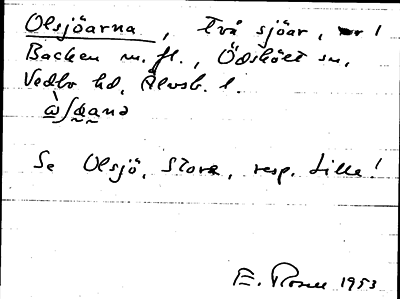 Olsjöarna, två sjöar, vr 1
Backen m. fl., Ödskölt sn,
Vedbo hd, Älvsb. l.
Se Olsjö, Stora, resp. Lilla!
E. Rosell 1953